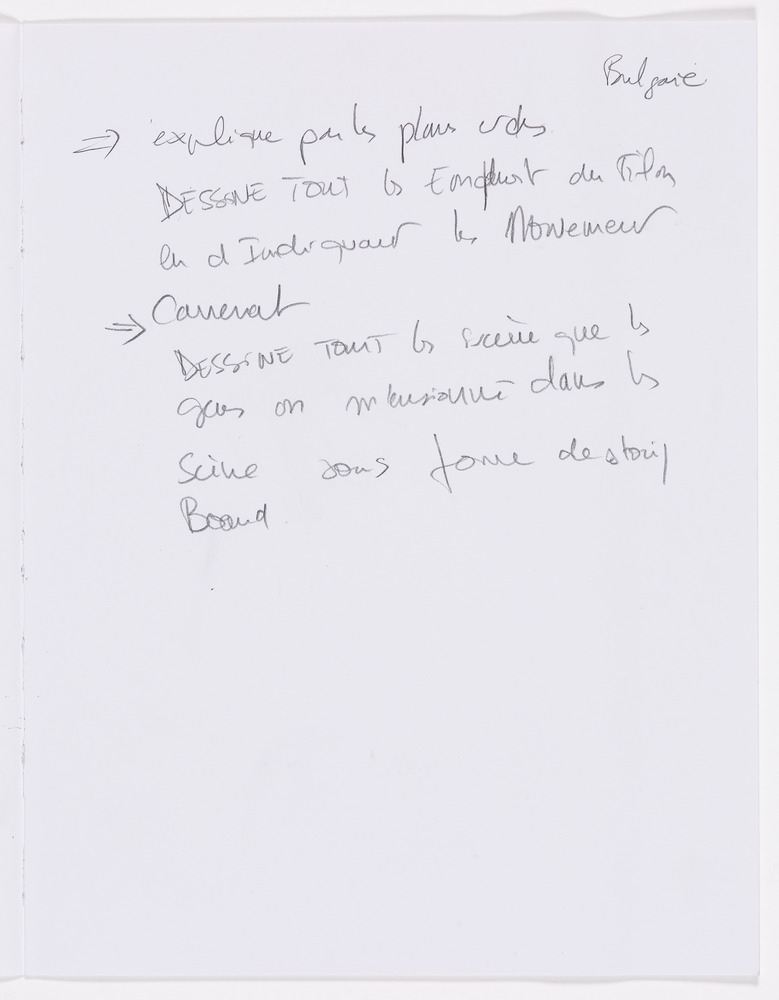 Bulgarie
⇒ explique par les plans
DESSINE TOUT les du Film
en d Indiquant les Mouvement
⇒ Camera
DESSINE TOUT les scène que les
gens on mensionné dans les
Scène sous forme de story
Board